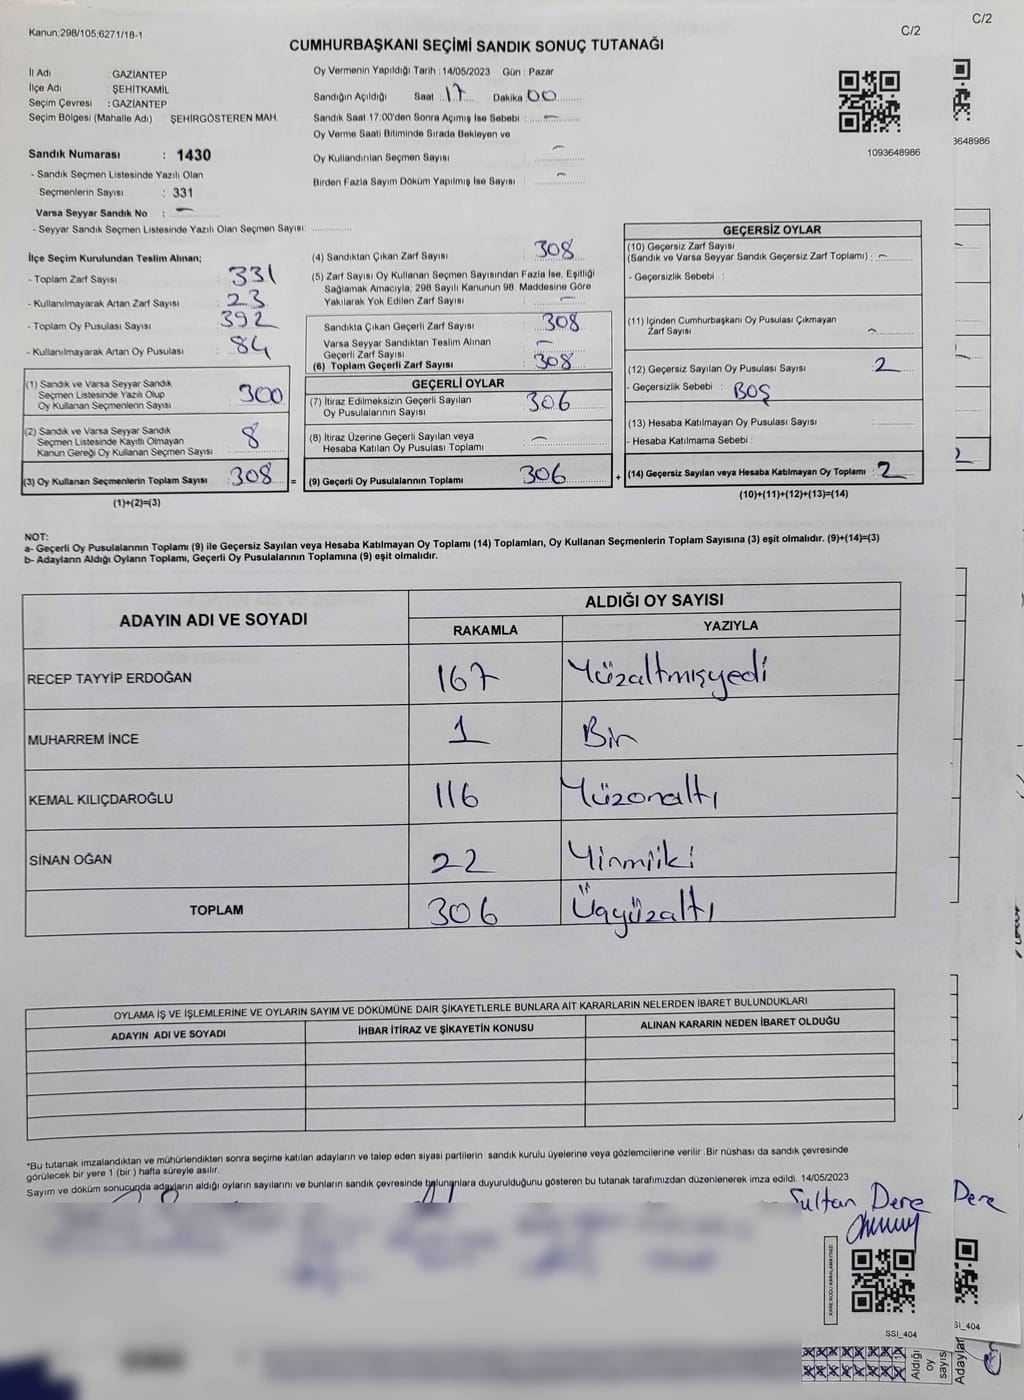 C/2
Kanun;298/105;6271/18-1
C/2
CUMHURBAŞKANI SEÇİMİ SANDIK SONUÇ TUTANAĞI
İl Adı : GAZİANTEP
İlçe Adı : ŞEHİTKAMİL
Seçim Çevresi : GAZİANTEP
Seçim Bölgesi (Mahalle Adı) : ŞEHİRGÖSTEREN MAH.
Sandık Numarası : 1430
- Sandık Seçmen Listesinde Yazılı Olan
Seçmenlerin Sayısı : 331
Varsa Seyyar Sandık No : –
- Seyyar Sandık Seçmen Listesinde Yazılı Olan Seçmen Sayısı: ..............
Oy Vermenin Yapıldığı Tarih : 14/05/2023 Gün : Pazar
Sandığın Açıldığı Saat : 17 Dakika 00
Sandık Saat 17:00'den Sonra Açımış İse Sebebi : –
Oy Verme Saati Bitiminde Sırada Bekleyen ve
Oy Kullandırılan Seçmen Sayısı : –
Birden Fazla Sayım Döküm Yapılmış İse Sayısı : –
1093648986
3648986
İlçe Seçim Kurulundan Teslim Alınan;
- Toplam Zarf Sayısı : 331
- Kullanılmayarak Artan Zarf Sayısı : 23
- Toplam Oy Pusulası Sayısı : 392
- Kullanılmayarak Artan Oy Pusulası : 84
(1) Sandık ve Varsa Seyyar Sandık
Seçmen Listesinde Yazılı Olup
Oy Kullanan Seçmenlerin Sayısı : 300
(2) Sandık ve Varsa Seyyar Sandık
Seçmen Listesinde Kayıtlı Olmayan
Kanun Gereği Oy Kullanan Seçmen Sayısı : 8
(3) Oy Kullanan Seçmenlerin Toplam Sayısı : 308 =
(1)+(2)=(3)
(4) Sandıktan Çıkan Zarf Sayısı : 308
(5) Zarf Sayısı Oy Kullanan Seçmen Sayısından Fazla İse, Eşitliği
Sağlamak Amacıyla; 298 Sayılı Kanunun 98. Maddesine Göre
Yakılarak Yok Edilen Zarf Sayısı : –
Sandıkta Çıkan Geçerli Zarf Sayısı : 308
Varsa Seyyar Sandıktan Teslim Alınan
Geçerli Zarf Sayısı : –
(6) Toplam Geçerli Zarf Sayısı : 308
GEÇERLİ OYLAR
(7) İtiraz Edilmeksizin Geçerli Sayılan
Oy Pusulalarının Sayısı : 306
(8) İtiraz Üzerine Geçerli Sayılan veya
Hesaba Katılan Oy Pusulası Toplamı : –
(9) Geçerli Oy Pusulalarının Toplamı : 306 +
GEÇERSİZ OYLAR
(10) Geçersiz Zarf Sayısı
(Sandık ve Varsa Seyyar Sandık Geçersiz Zarf Toplamı) : –
- Geçersizlik Sebebi :
(11) İçinden Cumhurbaşkanı Oy Pusulası Çıkmayan
Zarf Sayısı : –
(12) Geçersiz Sayılan Oy Pusulası Sayısı : 2
- Geçersizlik Sebebi : BOŞ
(13) Hesaba Katılmayan Oy Pusulası Sayısı : ..............
- Hesaba Katılmama Sebebi :
(14) Geçersiz Sayılan veya Hesaba Katılmayan Oy Toplamı : 2
(10)+(11)+(12)+(13)=(14)
2
NOT:
a- Geçerli Oy Pusulalarının Toplamı (9) ile Geçersiz Sayılan veya Hesaba Katılmayan Oy Toplamı (14) Toplamları, Oy Kullanan Seçmenlerin Toplam Sayısına (3) eşit olmalıdır. (9)+(14)=(3)
b- Adayların Aldığı Oyların Toplamı, Geçerli Oy Pusulalarının Toplamına (9) eşit olmalıdır.
ADAYIN ADI VE SOYADI ALDIĞI OY SAYISI
RAKAMLA YAZIYLA
RECEP TAYYİP ERDOĞAN 167 Yüzaltmışyedi
MUHARREM İNCE 1 Bir
KEMAL KILIÇDAROĞLU 116 Yüzonaltı
SİNAN OĞAN 22 Yirmiiki
TOPLAM 306 Üçyüzaltı
OYLAMA İŞ VE İŞLEMLERİNE VE OYLARIN SAYIM VE DÖKÜMÜNE DAİR ŞİKAYETLERLE BUNLARA AİT KARARLARIN NELERDEN İBARET BULUNDUKLARI
ADAYIN ADI VE SOYADI İHBAR İTİRAZ VE ŞİKAYETİN KONUSU ALINAN KARARIN NEDEN İBARET OLDUĞU
*Bu tutanak imzalandıktan ve mühürlendikten sonra seçime katılan adayların ve talep eden siyasi partilerin sandık kurulu üyelerine veya gözlemcilerine verilir .Bir nüshası da sandık çevresinde
görülecek bir yere 1 (bir ) hafta süreyle asılır.
Sayım ve döküm sonucunda adayların aldığı oyların sayılarını ve bunların sandık çevresinde bulunanlara duyurulduğunu gösteren bu tutanak tarafımızdan düzenlenerek imza edildi. 14/05/2023
Sultan Dere
Dere
SSI_404
SI_404
Aldığı
oy
sayıs
Adaylar